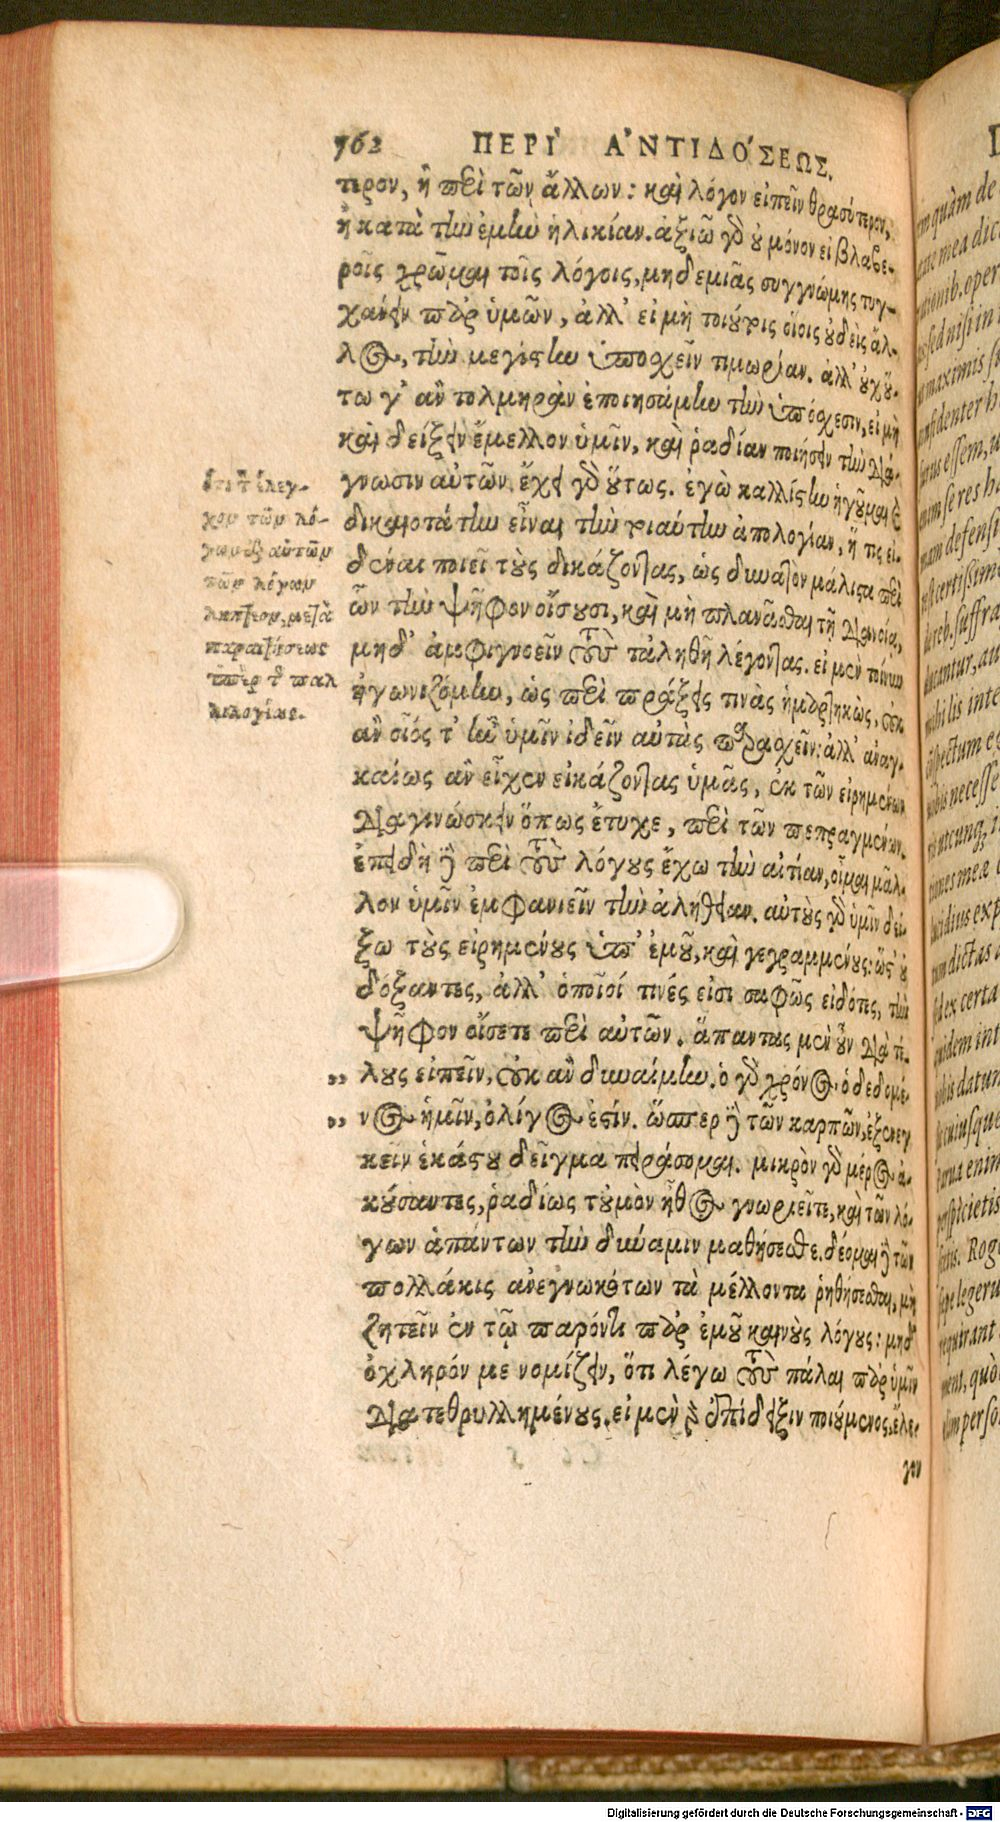 762 ΠΕΡΙ ἈΝΤΙΔΟΣΕΩΣ.
τερον, ἢ περὶ τῶν ἄλλων: καὶ λόγον εἰπεῖν θρασύτερον,
ἢ κατὰ τὴν ἐμὴν ἡλικίαν. ἀξιῶ γὰρ οὐ μόνον εἰ βλαβε-
ροῖς χρῶμαι τοῖς λόγοις, μηδεμιᾶς συγγνώμης τυγ-
χάνειν παρ' ὑμῶν, ἀλλ' εἰ μὴ τοιούτοις οἵοις οὐδεὶς ἄλ-
λος, τὴν μεγίστην ὑποσχεῖν τιμωρίαν. ἀλλ' οὐχ οὕ-
τω γ' ἂν τολμηρὰν ἐποιησάμην τὴν ὑπόσχεσιν, εἰ μὴ
καὶ δείξειν ἔμελλον ὑμῖν, καὶ ῥᾳδίαν ποιήσειν τὴν διά-
γνωσιν αὐτῶν. ἔχει γὰρ οὕτως. ἐγὼ καλλίστην ἡγοῦμαι καὶ
δικαιοτάτην εἶναι τὴν τοιαύτην ἀπολογίαν, ἥ τις εἰ-
δέναι ποιεῖ τοὺς δικάζοντας, ὡς δυνατὸν μάλιστα περὶ
ὧν τὴν ψῆφον οἴσουσι, καὶ μὴ πλανᾶσθαι τῇ διανοίᾳ,
μηδ' ἀμφιγνοεῖν τοὺς τἀληθῆ λέγοντας. εἰ μὲν τοίνυν
ἠγωνιζόμην, ὡς περὶ πράξεις τινὰς ἡμαρτηκὼς, οὐκ
ἂν οἷός τ' ἦν ὑμῖν ἰδεῖν αὐτὰς παρασχεῖν: ἀλλ' ἀναγ-
καίως ἂν εἶχεν εἰκάζοντας ὑμᾶς, ἐκ τῶν εἰρημένων
διαγινώσκειν ὅπως ἔτυχε, περὶ τῶν πεπραγμένων.
ἐπειδὴ δὲ περὶ τοὺς λόγους ἔχω τὴν αἰτίαν, οἶμαι μᾶλ-
λον ὑμῖν ἐμφανιεῖν τὴν ἀλήθειαν. αὐτοὺς γὰρ ὑμῖν δεί-
ξω τοὺς εἰρημένους ὑπ' ἐμοῦ, καὶ γεγραμμένους: ὥστ' οὐ
δόξαντες, ἀλλ' ὁποῖοί τινές εἰσι σαφῶς εἰδότες, τὴν
ψῆφον οἴσετε περὶ αὐτῶν. ἅπαντας μὲν οὖν διὰ τέ-
„ λους εἰπεῖν, οὐκ ἂν δυναίμην. ὁ γὰρ χρόνος ὁ δεδομέ-
„ νος ἡμῖν, ὀλίγος ἐστίν. ὥσπερ δὲ τῶν καρπῶν, ἐξενεγ
κεῖν ἑκάστου δεῖγμα πειράσομαι. μικρὸν γὰρ μέρος ἀ-
κούσαντες, ῥᾳδίως τοὐμὸν ἦθος γνωριεῖτε, καὶ τῶν λό-
γων ἁπάντων τὴν δύναμιν μαθήσεσθε. δέομαι δὲ τῶν
πολλάκις ἀνεγνωκότων τὰ μέλλοντα ῥηθήσεσθαι, μὴ
ζητεῖν ἐν τῷ παρόντι παρ' ἐμοῦ καινοὺς λόγους: μηδ'
ὀχληρόν με νομίζειν, ὅτι λέγω τοὺς πάλαι παρ' ὑμῖν
διατεθρυλλημένους. εἰ μὲν γὰρ ἐπίδειξιν ποιούμενος, ἔλε-
γον
ὅτι τὸν ἔλεγ-
χον τῶν λό-
γων ἐξ αὐτῶν
τῶν λόγων
ληπτέον, μετὰ
παραιτήσεως
ὑπὲρ τῆς παλ
λιλογίας.
Digitalisierung gefördert durch die Deutsche Forschungsgemeinschaft - DFG